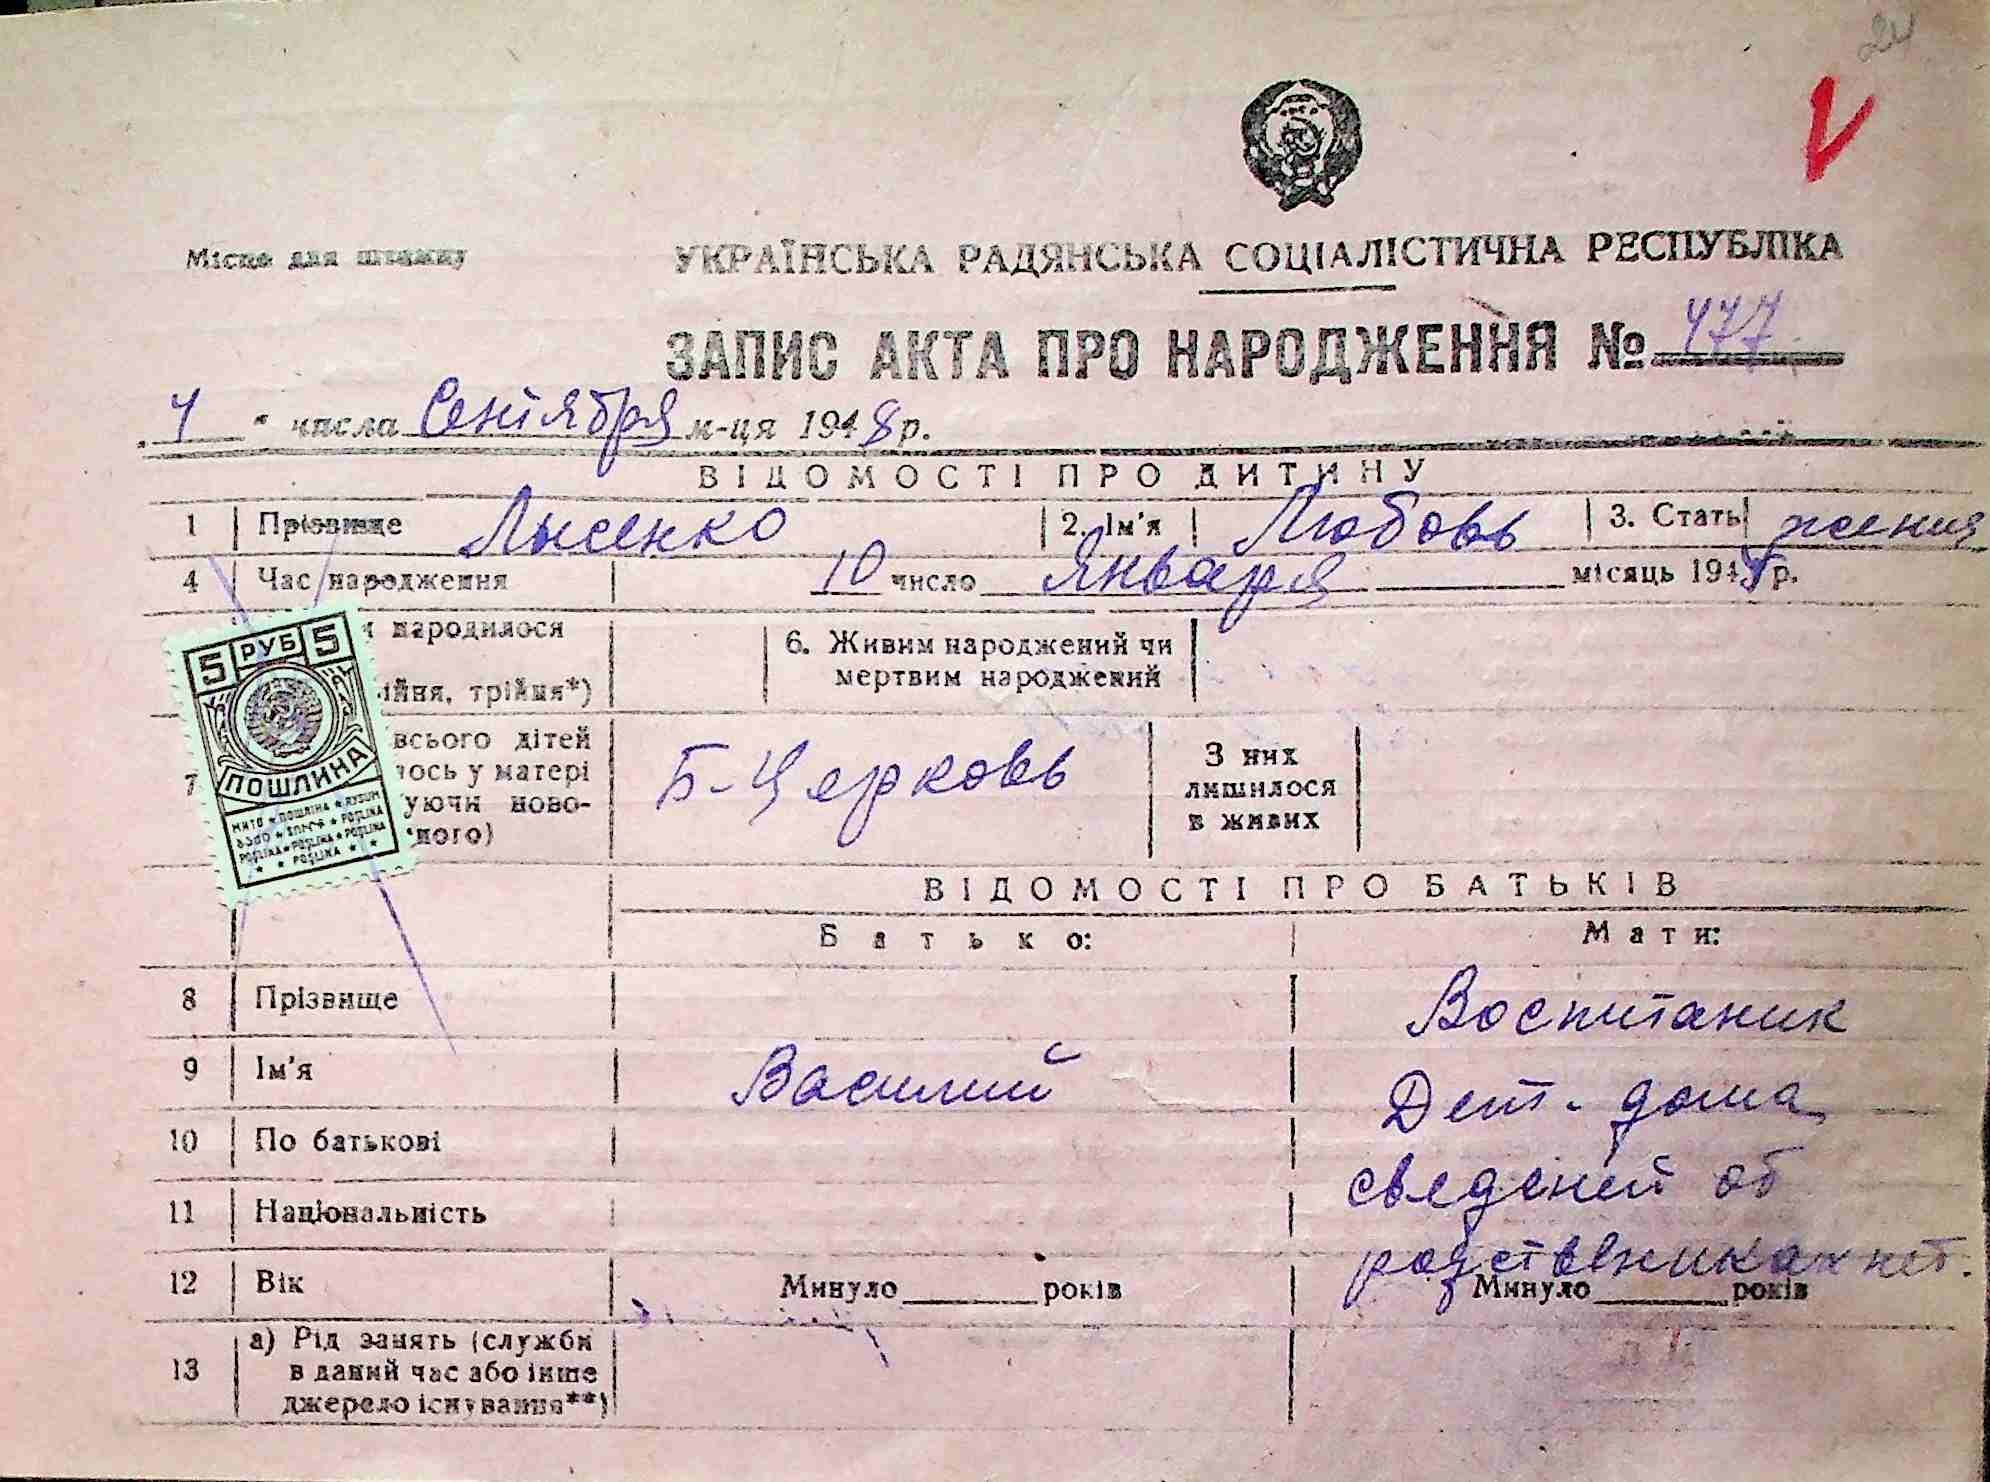 24
V
Місце для штампу
УКРАЇНСЬКА РАДЯНСЬКА СОЦІАЛІСТИЧНА РЕСПУБЛІКА
ЗАПИС АКТА ПРО НАРОДЖЕННЯ № 477
„4“ числа Сентября м-ця 1948 р.
ВІДОМОСТІ ПРО ДИТИНУ
1 Прізвище Лысенко 2. Ім'я Любовь 3. Стать жения
4 Час народження 10 число Января місяць 194 р.
народилося
6. Живим народжений чи
мертвим народжений
ійня, трійня*)
7 всього дітей
лось у матері
уючи ново-
ного)
Б-Церковь
З них
лишилося
в живих
5 РУБ 5
ПОШЛИНА
МИТО ★ ПОШЛІНА ★
POȘLINA
ВІДОМОСТІ ПРО БАТЬКІВ
Батько: Мати:
8 Прізвище Воспитаник
9 Ім'я Василий Дет-дома
10 По батькові
11 Національність сведений об
12 Вік Минуло ___ років родственниках нет.
Минуло ___ років
13 а) Рід занять (служби
в даний час або інше
джерело існування**)